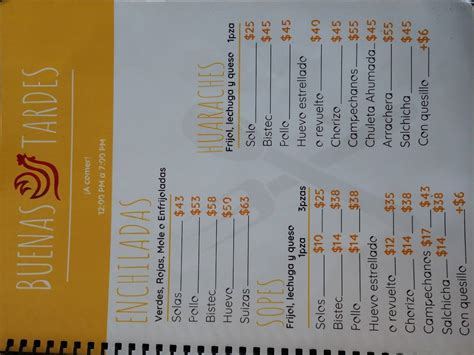 BUENAS TARDES
¡A comer!
12:00 PM a 7:00 PM
ENCHILADAS
Verdes, Rojas, Mole o Enfrijoladas
Solas $43
Pollo $53
Bistec $58
Huevo $50
Suizas $63
SOPES
Frijol, lechuga y queso 1pza 3pzas
Solo $10 $25
Bistec $14 $38
Pollo $14 $38
Huevo estrellado
o revuelto $12 $35
Chorizo $14 $38
Campechanos $17 $43
Salchicha $14 $38
Con quesillo +$6
HUARACHES
Frijol, lechuga y queso 1pza
Solo $25
Bistec $45
Pollo $45
Huevo estrellado
o revuelto $40
Chorizo $45
Campechanos $55
Chuleta Ahumada $45
Arrachera $55
Salchicha $45
Con quesillo +$6